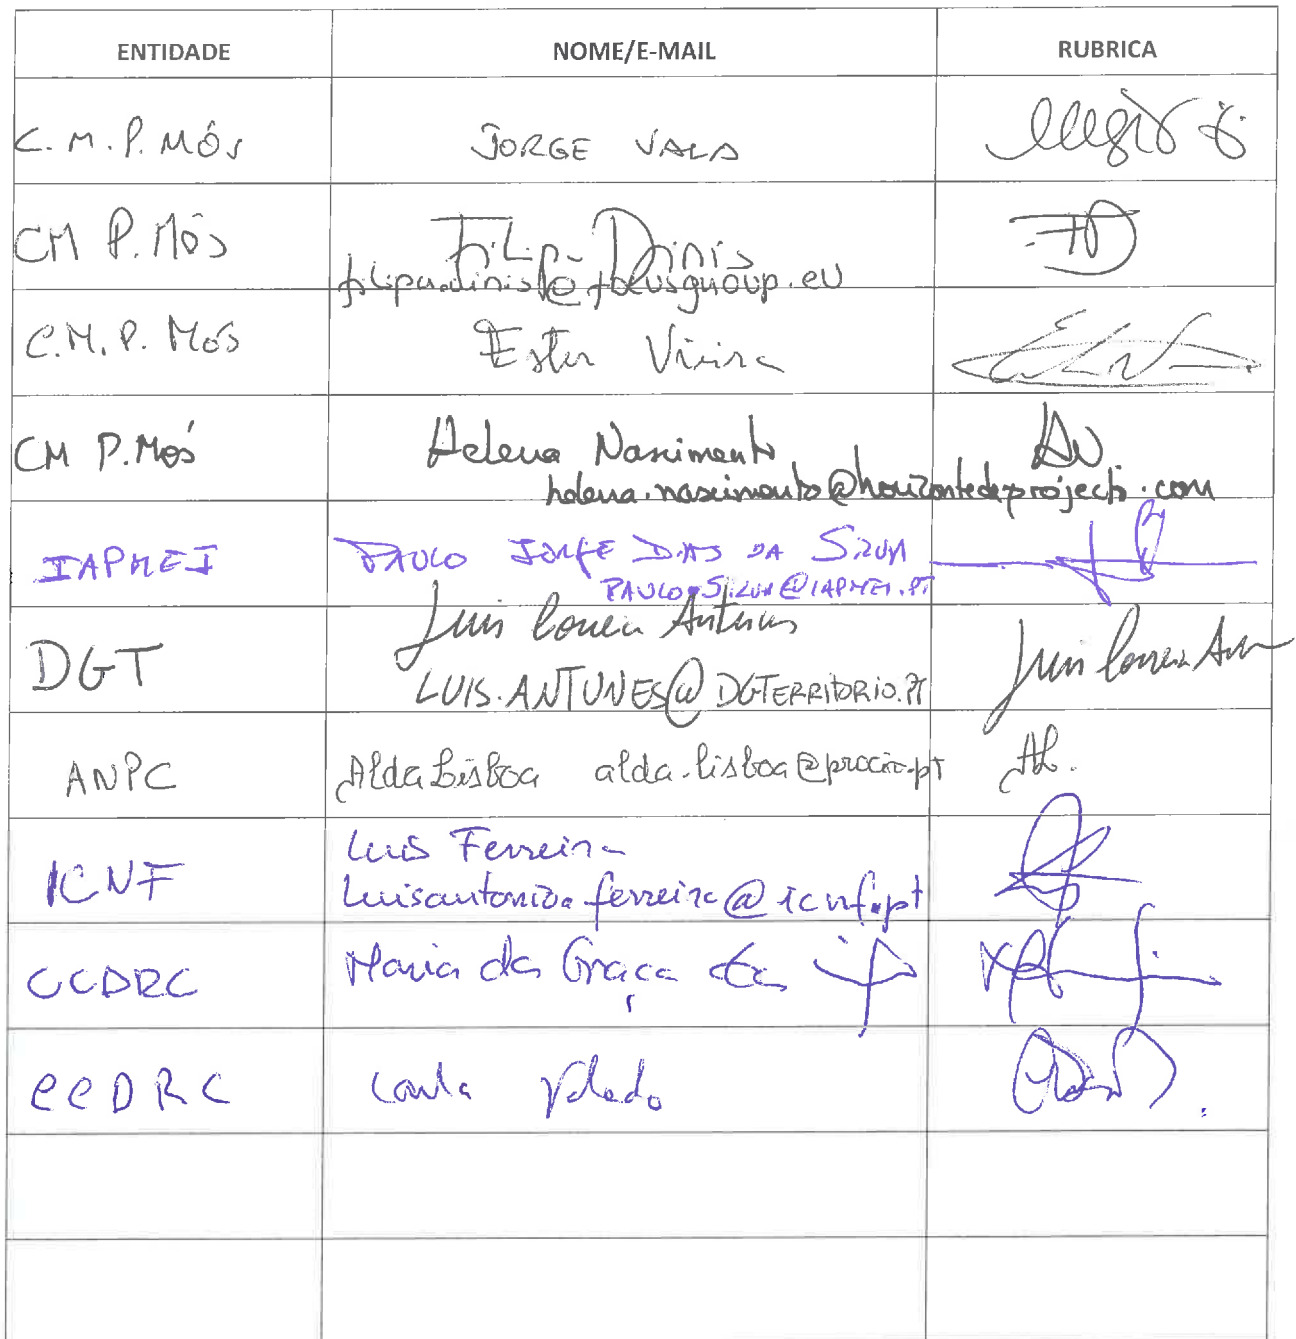 ENTIDADE NOME/E-MAIL RUBRICA
C. M. P. MÓS JORGE VALA
CM P. MÓS Filipa Dinis
filipa.dinis@focusgroup.eu
C.M. P. MÓS Ester Vieira
CM P. MÓS Helena Nascimento
helena.nascimento@horizontedeprojecto.com
IAPMEI PAULO JORGE DIAS DA SILVA
PAULO.SILVA@IAPMEI.PT
DGT Luis Correia Antunes
LUIS.ANTUNES@DGTERRITORIO.PT
ANPC Alda Lisboa alda.lisboa@prociv.pt AL.
ICNF Luis Ferreira
Luisantonio.ferreira@icnf.pt
CCDRC Maria da Graça
CCDRC Carla